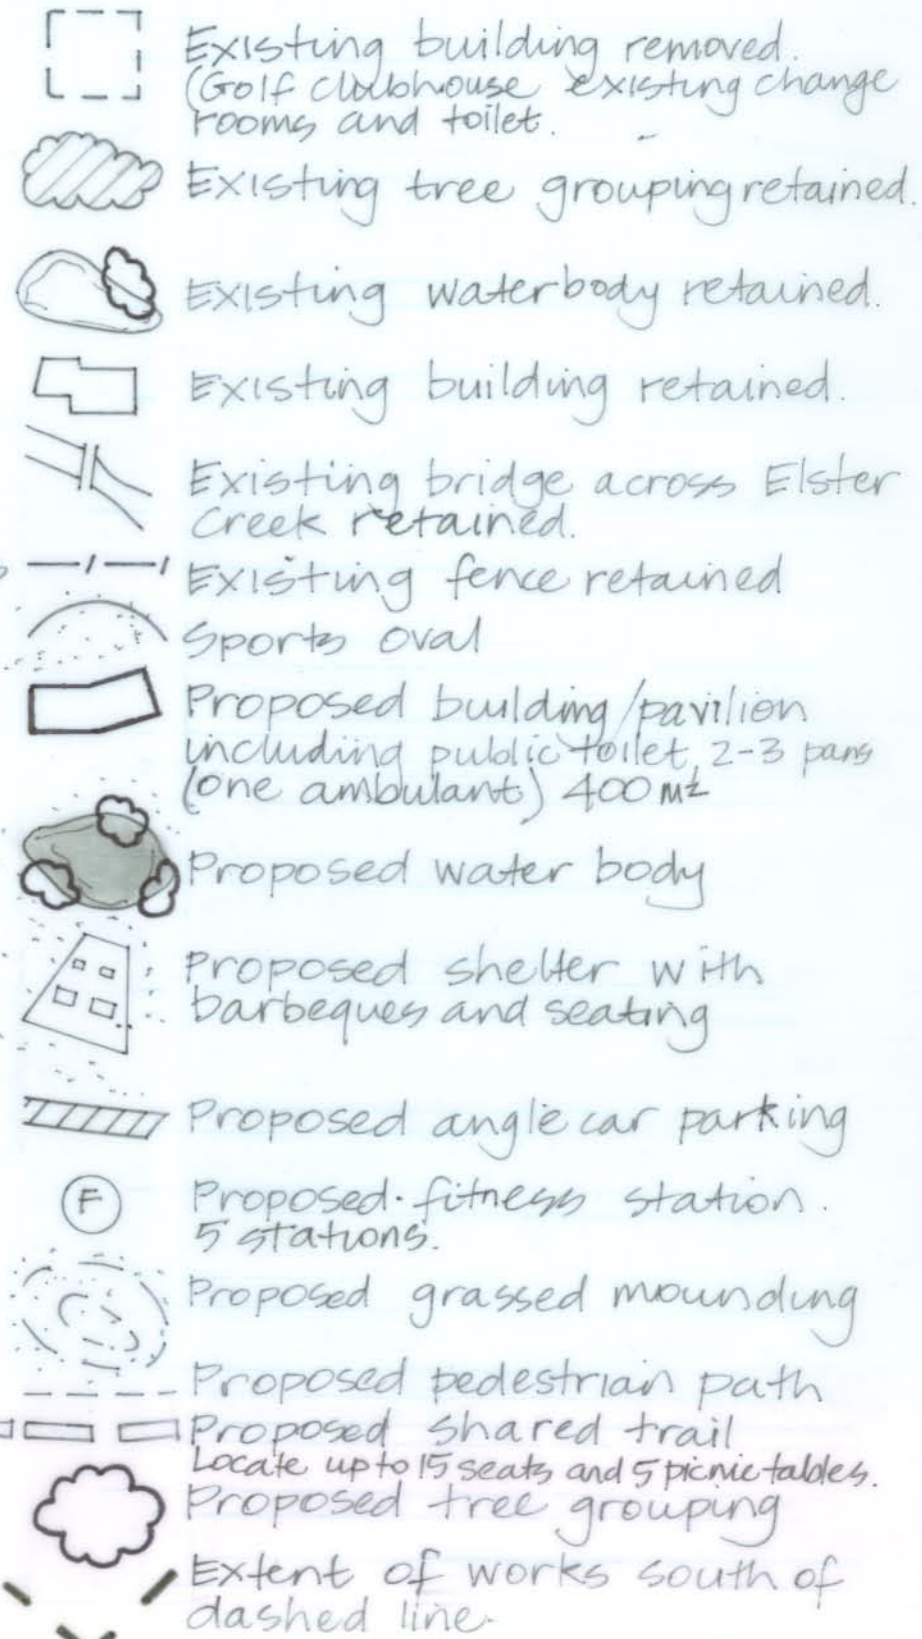 Existing building removed.
(Golf clubhouse existing change
rooms and toilet.
Existing tree grouping retained.
Existing waterbody retained.
Existing building retained.
Existing bridge across Elster
Creek retained.
Existing fence retained
Sports oval
Proposed building/pavilion
including public toilet, 2-3 pans
(one ambulant) 400m²
Proposed water body
Proposed shelter with
barbeques and seating
Proposed angle car parking
F
Proposed fitness station.
5 stations.
Proposed grassed mounding
Proposed pedestrian path
Proposed shared trail
Locate up to 15 seats and 5 picnic tables.
Proposed tree grouping
Extent of works south of
dashed line.